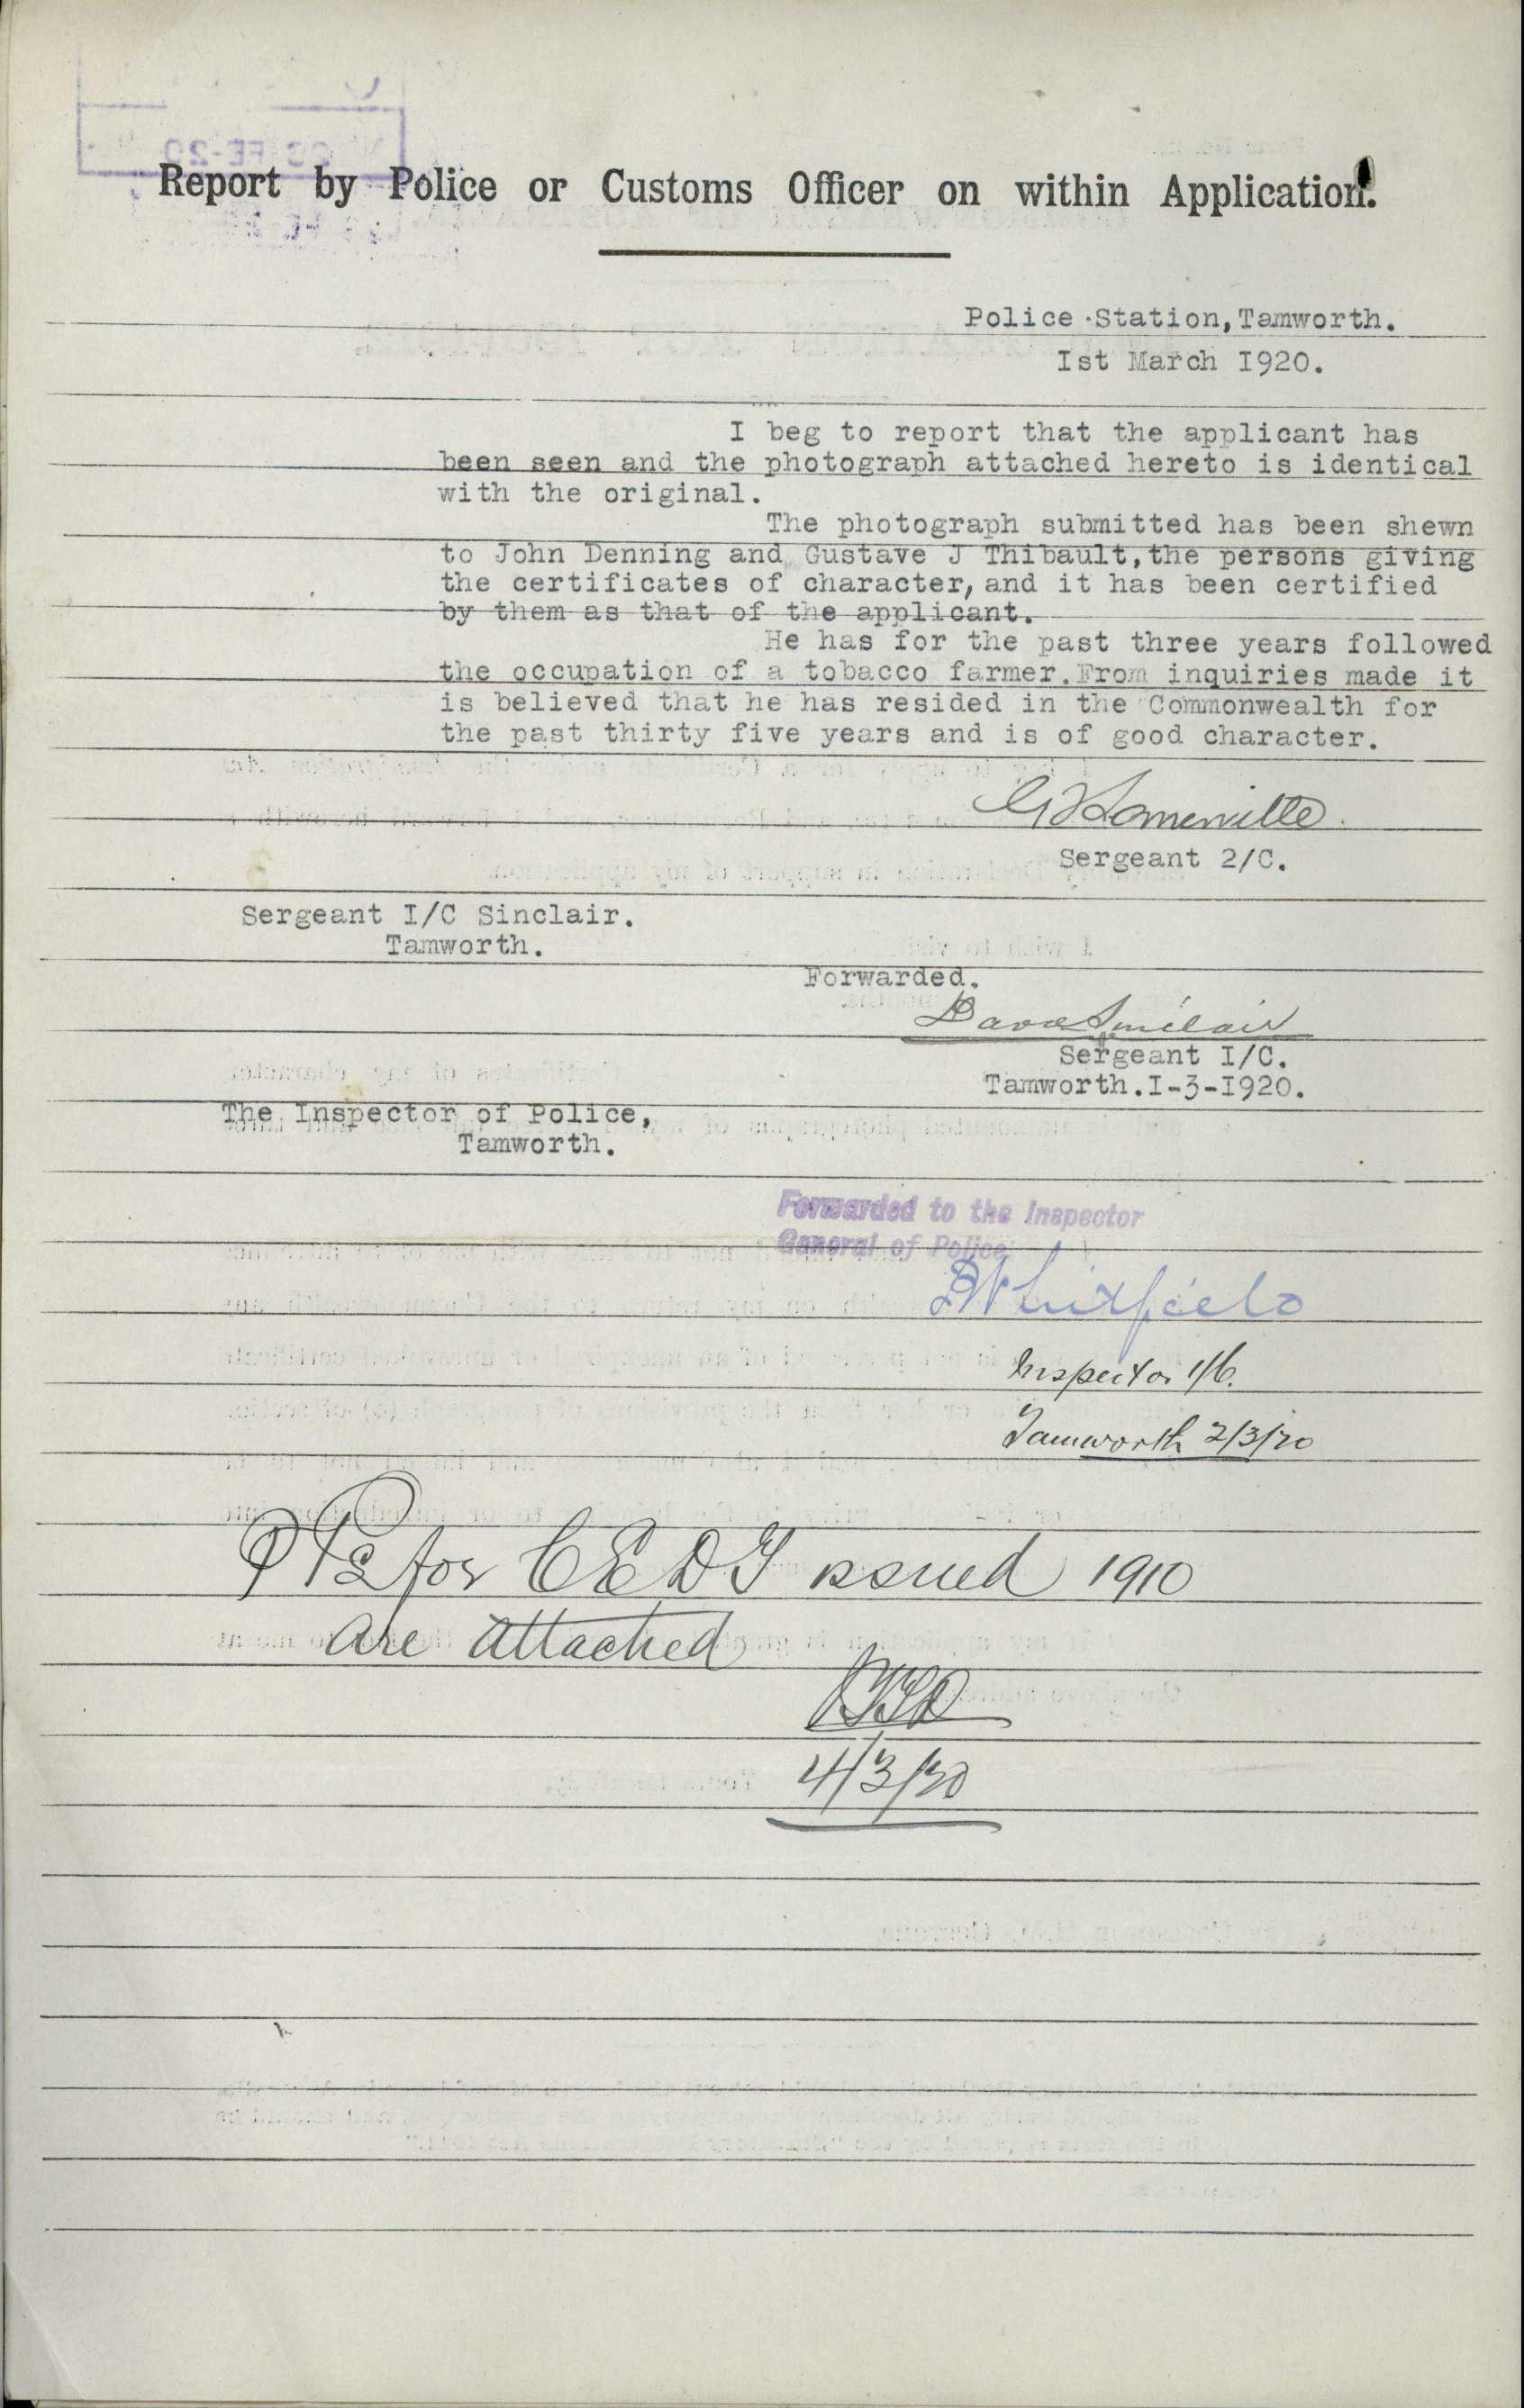 Report by Police or Customs Officer on within Application.
Police Station, Tamworth.
Ist March I920.
I beg to report that the applicant has
been seen and the photograph attached hereto is identical
with the original.
The photograph submitted has been shewn
to John Denning and Gustave J Thibault, the persons giving
the certificates of character, and it has been certified
by them as that of the applicant.
He has for the past three years followed
the occupation of a tobacco farmer. From inquiries made it
is believed that he has resided in the Commonwealth for
the past thirty five years and is of good character.
Sergeant 2/C.
Sergeant I/C Sinclair.
Tamworth.
Forwarded.
Sinclair
Sergeant I/C.
Tamworth. I-3-I920.
The Inspector of Police,
Tamworth.
Forwarded to the Inspector
General of Police
Whitfield
Inspector
Tamworth 2/3/20
for CEDT issued 1910
are attached
4/3/20